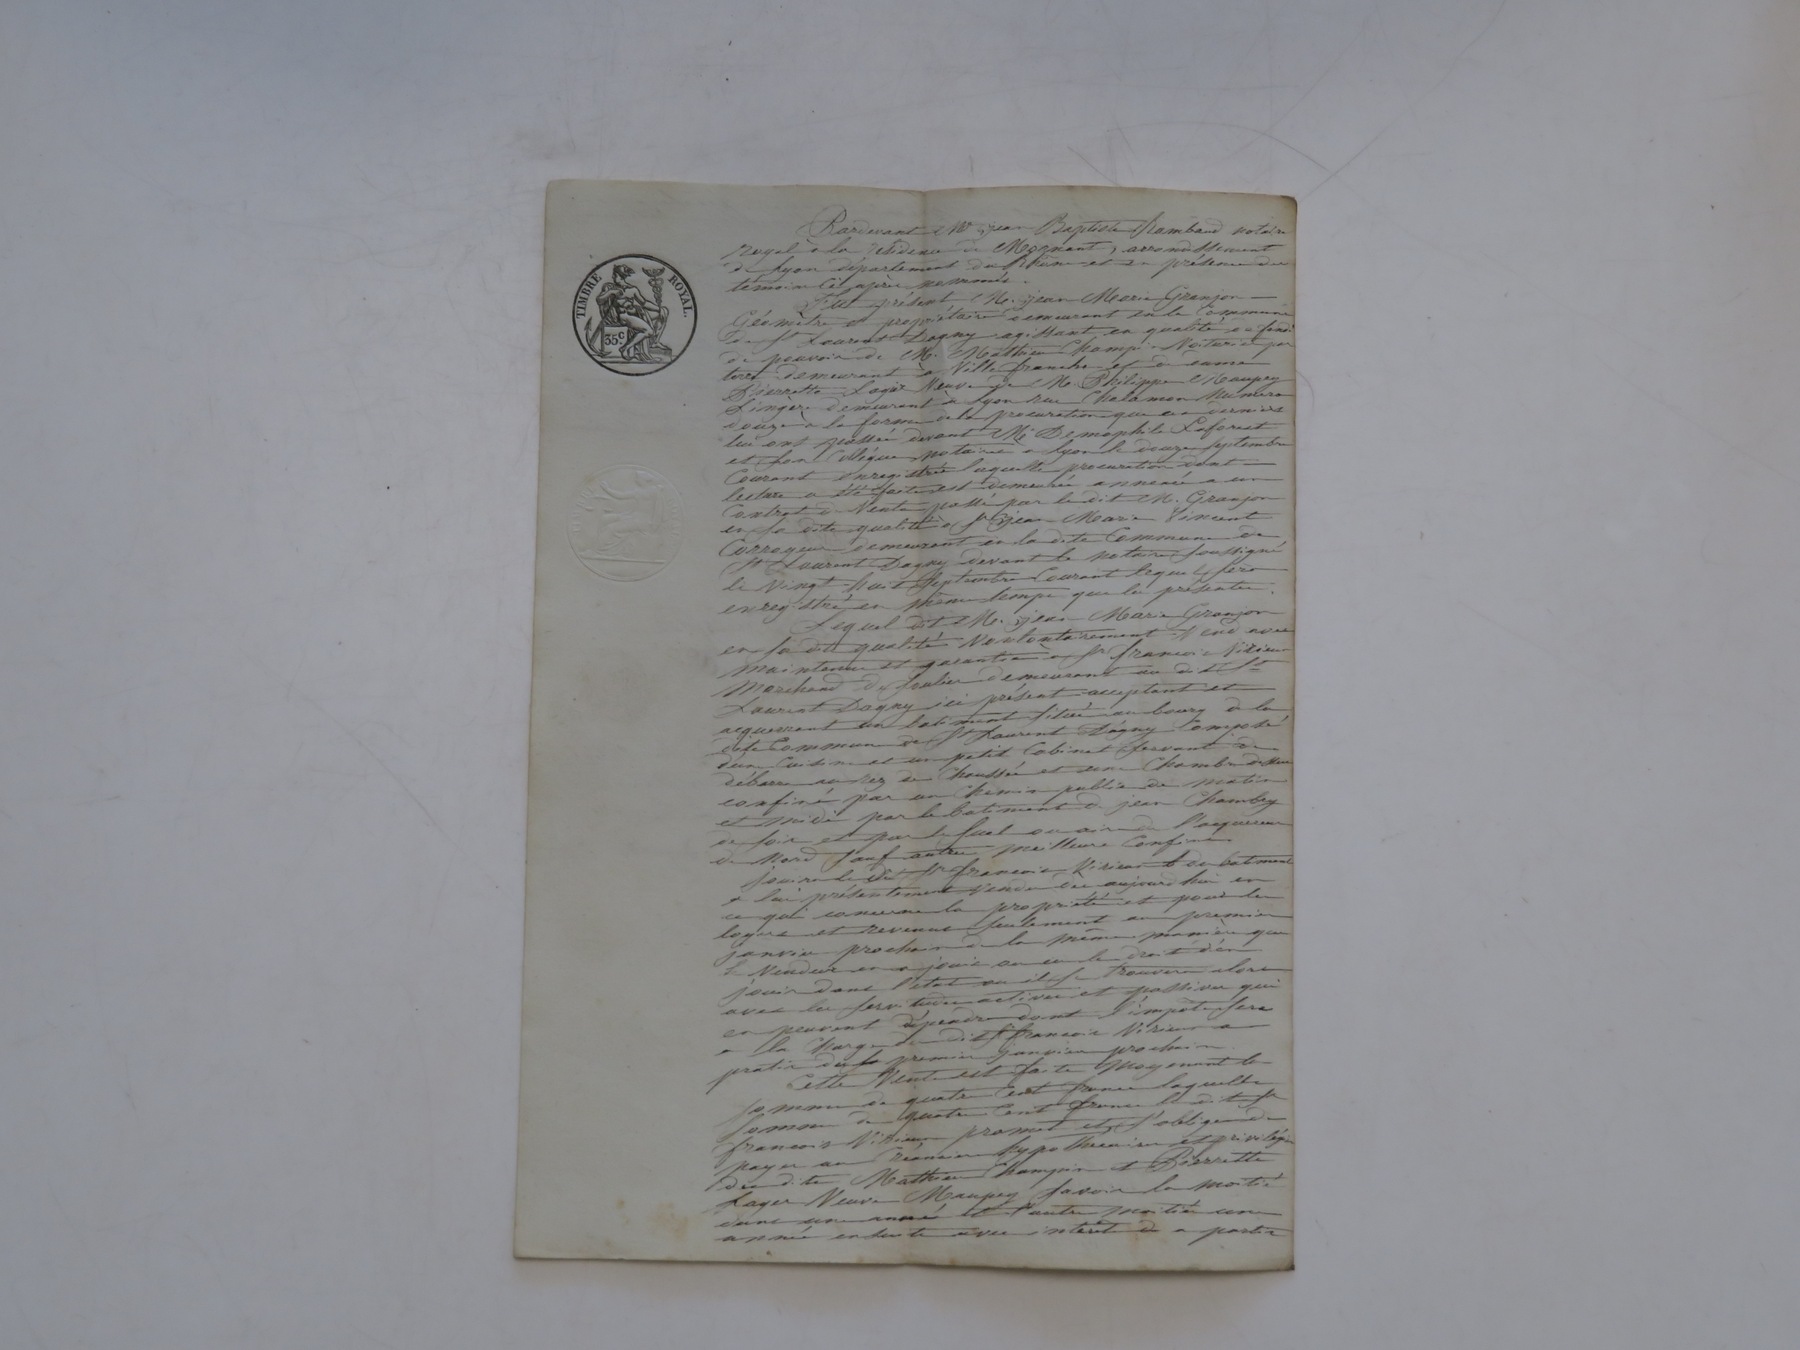 TIMBRE ROYAL.
35 c.
Pardevant Me jean Baptiste Rambaud notaire
royal à la résidence de Mornant, arrondissement
de Lyon département du Rhône et en présence des
témoins ci après nommés.
Fut présent M. jean Marie Granjon
Géomètre et propriétaire demeurant en la Commune
de St Laurent Dagny agissant en qualité de fondé
de pouvoir de M. Mathieu Champin Voiturier par
terre demeurant à Ville franche et de dame
Pierrette Loyer Veuve de M. Philippe Maupey
Lingère demeurant à Lyon rue Chalamon Numéro
douze à la forme de la procuration que ces derniers
lui ont passée devant Me Demophile Laforest
et son Collègue notaires à Lyon le douze septembre
Courant enregistrée laquelle procuration dont
lecture a été faite est demeurée annexée a un
Contrat de Vente passé par le dit M. Granjon
en sa dite qualité à Sr jean Marie Vincent
Corroyeur demeurant en la dite Commune de
St Laurent Dagny devant le notaire soussigné
le Vingt huit Septembre Courant lequel sera
enregistré en même temps que les présentes.
Lequel dit M. jean Marie Granjon
en sa dite qualité Vonlontairement Vend avec
maintenue et garantie à Sr françois Virieux
Marchand de soulier demeurant au dit St
Laurent Dagny ici présent acceptant et
acquerrant un batiment situé au bourg de la
dite Commune de St Laurent Dagny Composé
d'un Cuisine et un petit Cabinet servant de
débarra au rez de Chaussée et une Chambre dessus
confiné par un Chemin public de matin
et midi par le batiment de jean Chambry
de soir et par le sual ou air de l'acquereur
de Nord sauf autres meilleurs Confins.
Jouira le dit Sr françois Virieux du batiment
à lui présentement Vendu dès aujourdhui en
ce qui concerne la propriété et pour les
loyers et revenus seulement au premier
janvier prochain de la même manière que
le Vendeur en a joui ou eu le droit d'en
jouir dans l'état ou il se trouvera alors
avec les servitudes actives et passives qui
en peuvent dépendre dont l'impôt sera
a la Charge du dit Sr françois Virieux a
pratir du premier janvier prochain.
Cette Vente est faite moyenant la
somme de quatre Cent francs laquelle
somme de quatre Cent francs le dit Sr
françois Virieux promet et s'oblige de
payer au Créancier hypothecaires et privilégiés
des dits Mathieu Champin et Pierrette
Loyer Veuve Maupey savoir la moitié
dans une année et l'autre moitié une
année ensuite avec intérêt de a partir